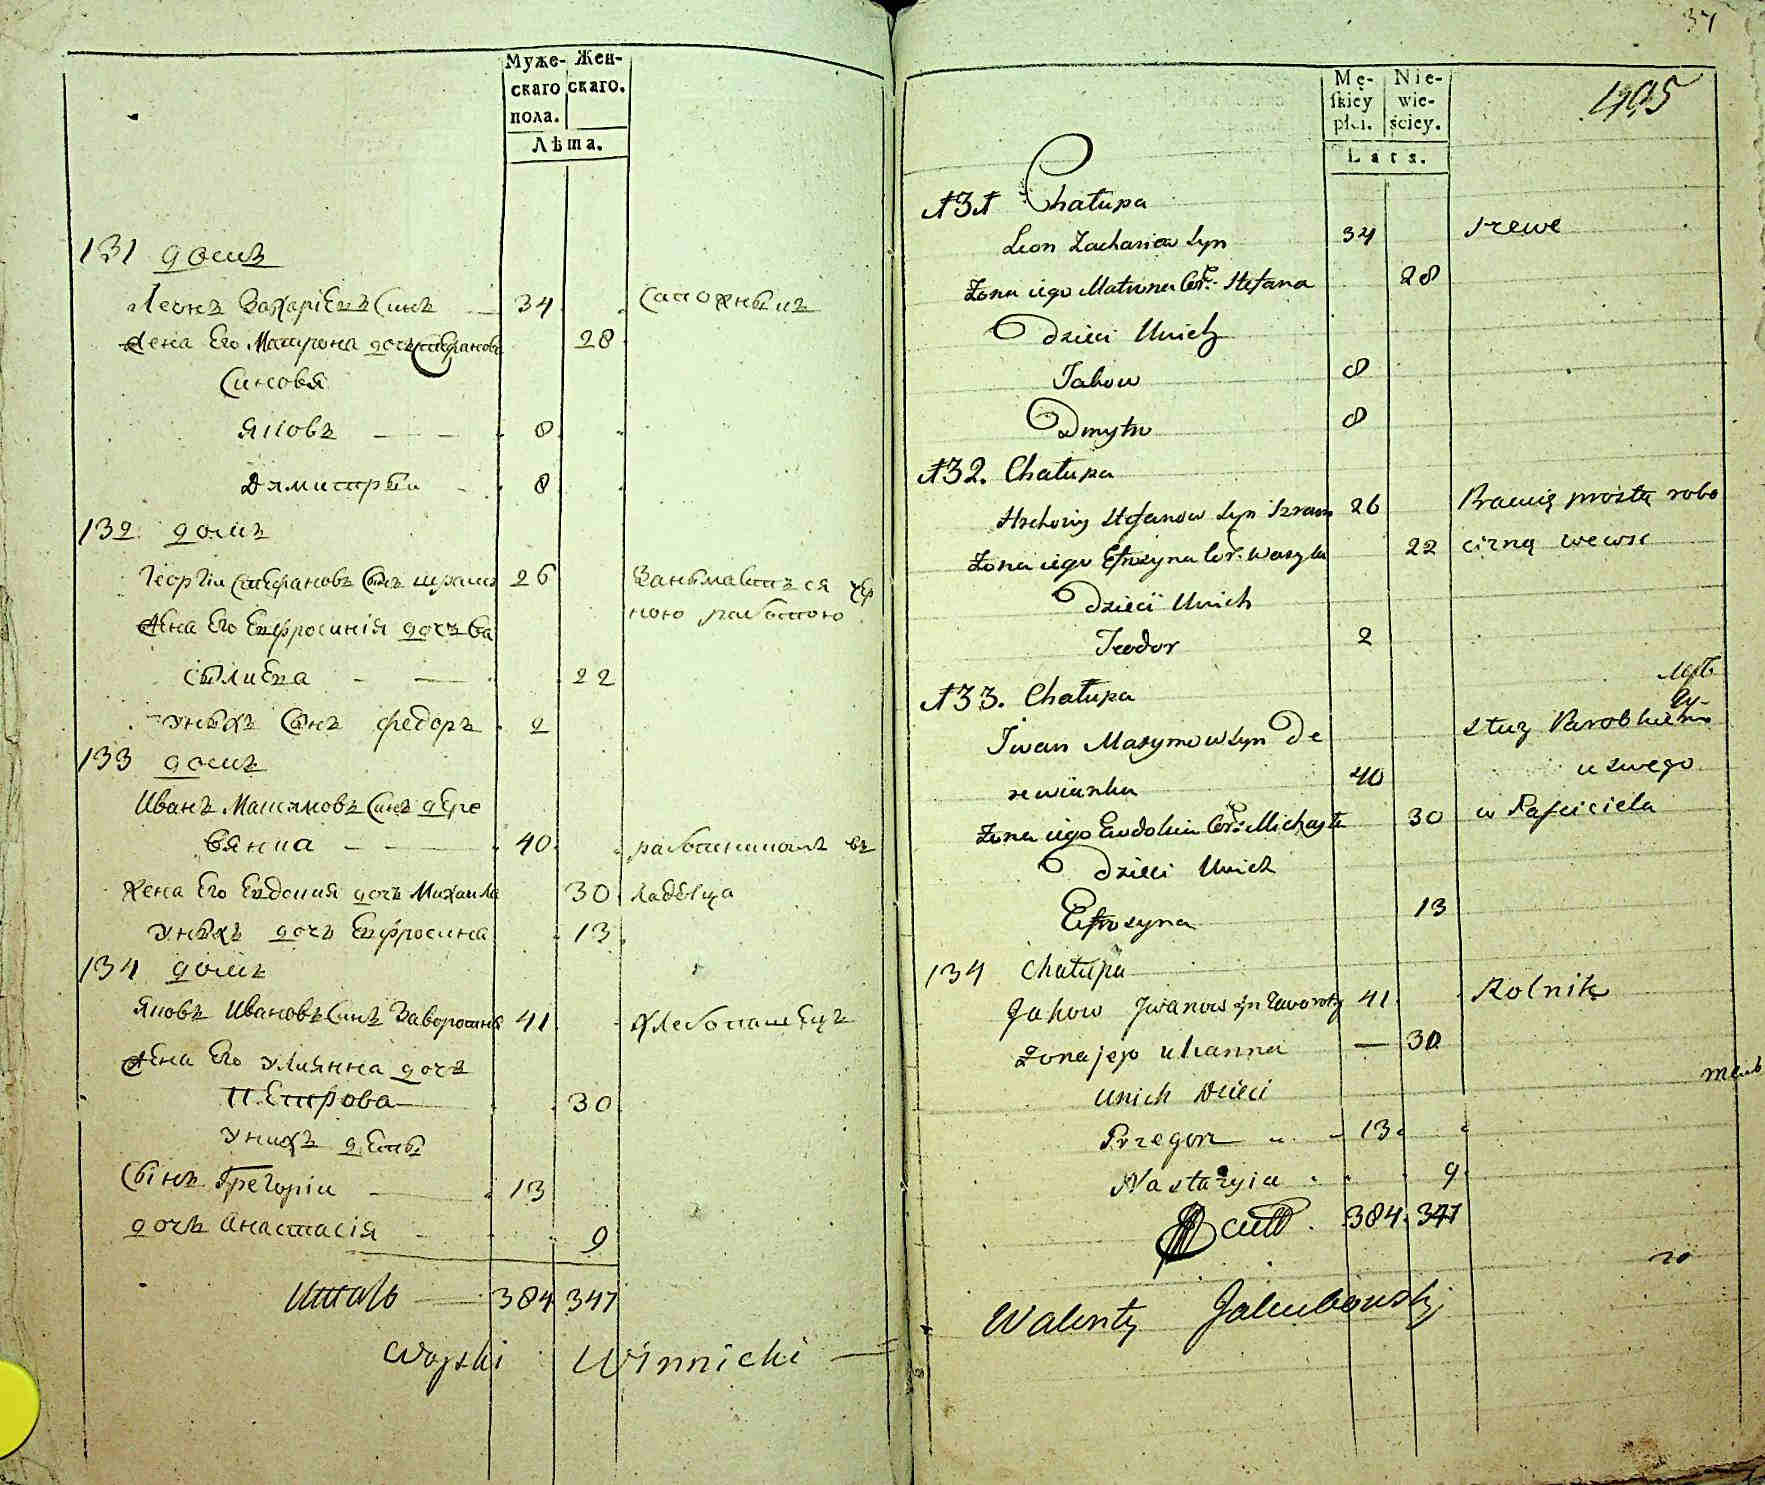 Муже-
скаго
пола.
Жен-
скаго.
Лѣта.
131 домъ
Леонъ Захаріевъ Синъ 34 Сапожникъ
Жена Его Матрона дочь Стефанова 28
Синовя
Яковъ 8
Дямитрый 8
132 домъ
Георгіи Стефановъ Синъ 26 Занымаетъся чер
Жена Его Евфросинія дочъ Ва ною работою
сылиева 22
Унихъ Синъ Федоръ 2
133 домъ
Иванъ Масимовъ Синъ дере
вянка 40 работникомъ въ
Жена Его Евдокия дочъ Михаила 30
Унихъ дочъ Евфросина 13
134 домъ
Яковъ Ивановъ Синъ 41 Хлебопашецъ
Жена Его Улиянна дочъ
Петрова 30
Унихъ дети
Сынъ Грегорій 13
дочъ Анастасія 9
Итого 384 347
Woyski Winnicki
37
1795
Mę-
skiey
płci.
Nie-
wie-
ściey.
Lata.
131 Chałupa
Leon Zachariow Syn 34 Szewc
Zona iego Matrona Cor: Stefana 28
Dzieci Unich
Jakow 8
Dmytro 8
132. Chałupa
Hrehory Stefanow Syn 26 Bawię prostą robo
Zona iego Efrozyna Cor: Wasyla 22
Dzieci Unich
Teodor 2
133. Chałupa
Iwan Masymow Syn De służ Parobkiem
rewianka 40 u swego
Zona iego Eudokia Cor: Michayła 30
Dzieci Unich
Efrozyna 13
134 Chałupa
Jakow Jwanow Syn 41 Rolnik
Zona jego Ulianna 30
Unich Dzieci
Przegorz 13
Nastazyia 9
384 347
Walenty Jakubowski